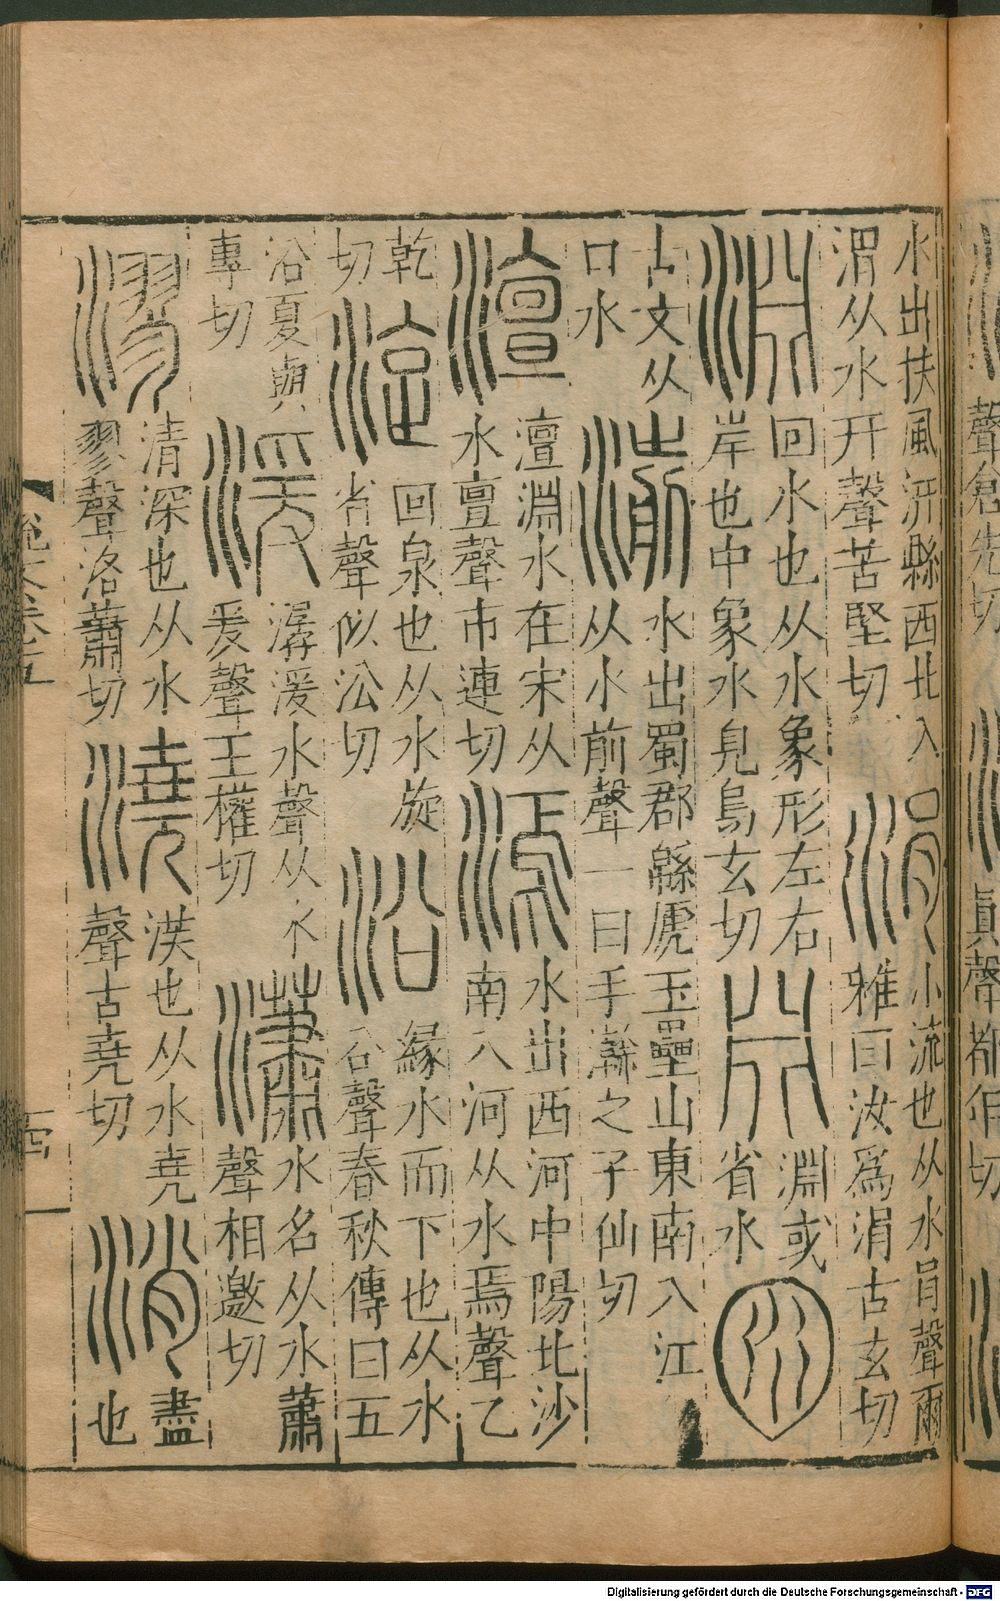 水出扶風汧縣西北入渭从水幵聲苦堅切 涓 小流也从水肙聲爾雅曰汝爲涓古玄切
淵 回水也从水象形左右岸也中象水皃烏玄切 𣶒 淵或省水 囦
古文从口水 湔 水出蜀郡緜虒玉壘山東南入江从水前聲一曰手瀚之子仙切
澶 澶淵水在宋从水亶聲市連切 漹 水出西河中陽北沙南入河从水焉聲乙
乾切 㳬 回泉也从水旋省聲似㳂切 沿 緣水而下也从水㕣聲春秋傳曰五
沿夏與專切 湲 潺湲水聲从水爰聲王權切 瀟 水名从水蕭聲相邀切
漻 清深也从水翏聲洛蕭切 澆 渶也从水堯聲古堯切 消 盡也
說文卷五
Digitalisierung gefördert durch die Deutsche Forschungsgemeinschaft - DFG